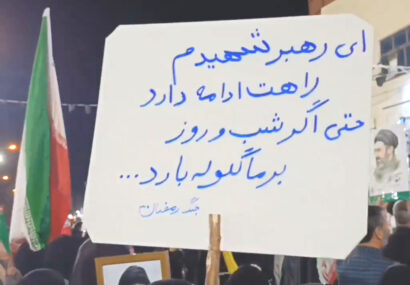 ای رهبر شهیدم
راهت ادامه دارد
حتی اگر شب و روز
بر ما گلوله بارد...
جنگ رمضان